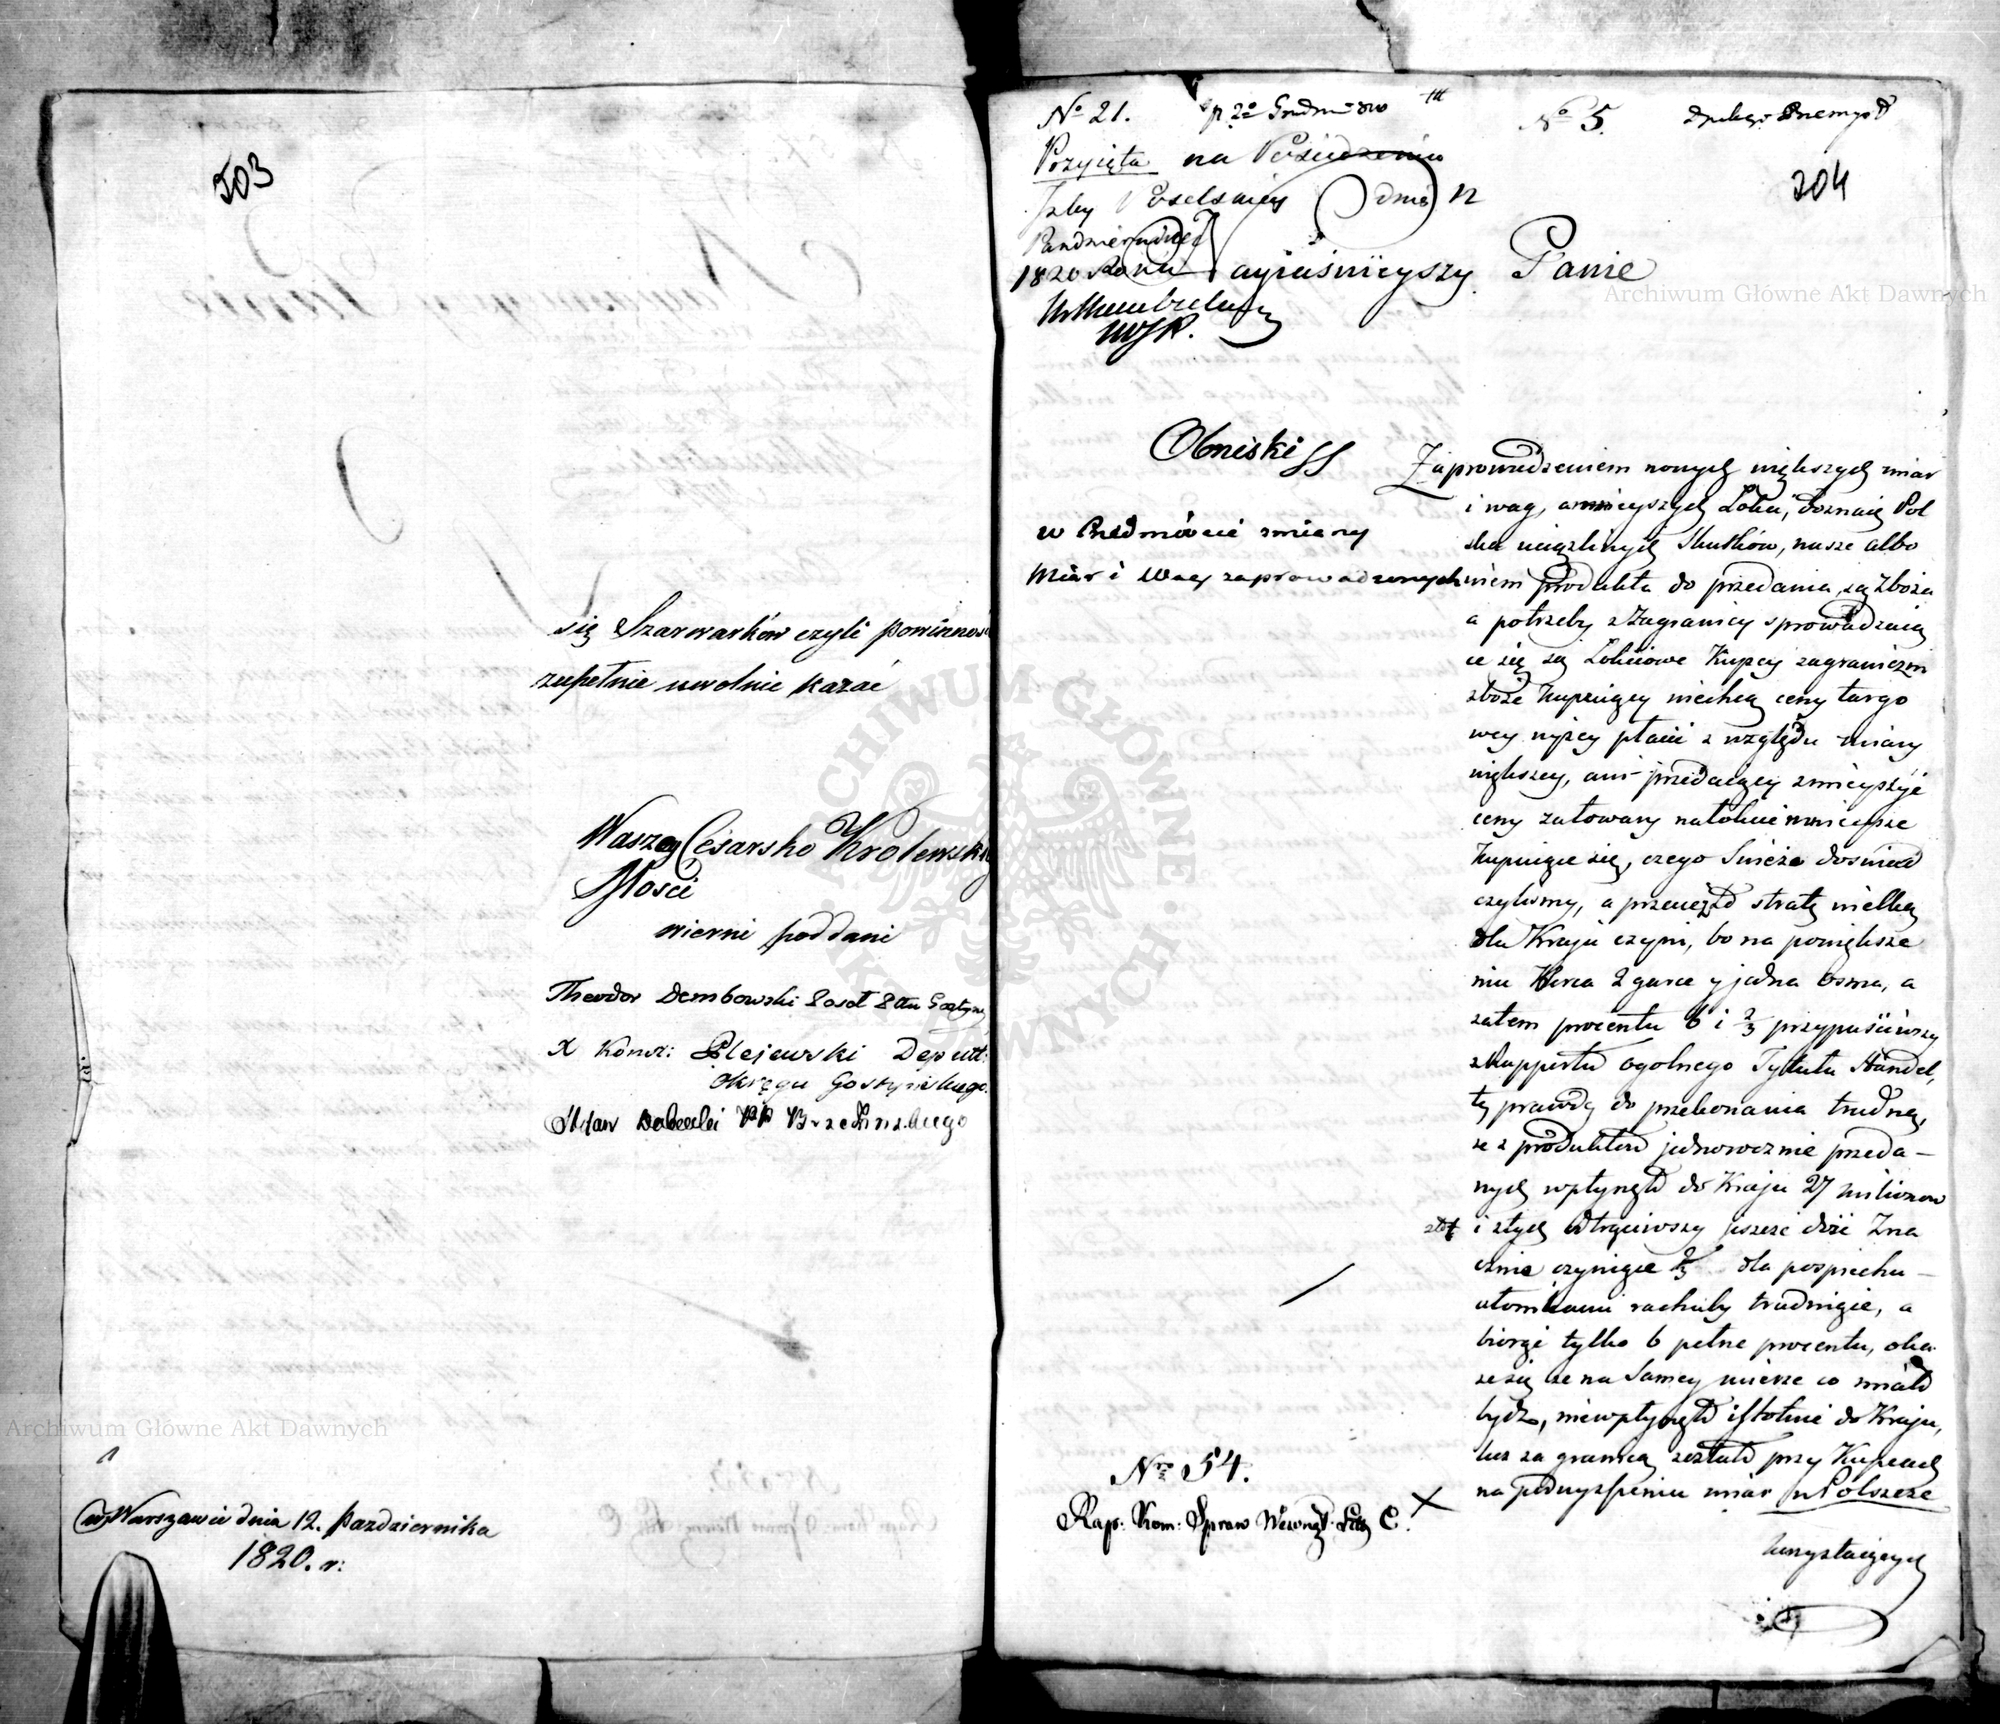 503
się Szarwarków czyli powinności
zupełnie uwolnić kazać
Waszey Cesarsko Krolewskiey
Mosci
wierni poddani
Theodor Dembowski Poseł
X Konst: Plejewski Deputt:
Okręgu Gostyńskiego.
Brzezinskiego
w Warszawie dnia 12. Pazdziernika
1820. r:
No 21.
No 5.
204
Przyięta na Posiedzeniu
Izby Poselskiey dnia 12
Pazdziernika
1820 Roku
Nayiaśnieyszy Panie
Obniski
w Przedmiocie zmiany
Miar i Wag zaprowadzonych
Zaprowadzeniem nowych większych miar
i wag, a mnieyszych Łokci, doznaię Pol
ska uciążliwych Skutków, nasze albo
wiem produkta do przedania, są zboża
a potrzeby z Zagranicy sprowadzaią
ce się są Łokciowe Kupcy zagraniczni
zboże kupuiący niechcą ceny targo
wey wyżey płacić z względu miary
większey, ani przedaiący zmieyszyć
ceny za towary na łokcie mnieysze
kupuiące się, czego Swieżo doswiad
czylismy, a przeciąż stratę wielką
dla Kraju czyni, bo na powiększe
niu Korca 2 garce y jedna osma, a
zatem procentu 6 i 2/3 przypuściwszy
z Rapportu ogolnego Tytułu Handel,
tę prawdę do przekonania trudną,
że z produktów jednorocznie przeda-
nych wpłynęło do Kraju 27 milionow
złot i z tych odtrąciwszy jeszcze dziś Zna
cznie czyniące 2/3 dla pospiechu
ułomkami rachuby trudniące, a
biorąc tylko 6 pełne procentu, oka
że się że na Samey mierze co miało
bydz, niewpłynęło istotnie do Kraju,
lecz za granicą zostało przy Kupcach
na podwyższeniu miar w Polszcze
korzystaiących
Nro 54.
Rap: Kom: Spraw Wewnęt: Lit C.
Archiwum Główne Akt Dawnych
Archiwum Główne Akt Dawnych
ARCHIWUM GŁÓWNE AKT DAWNYCH